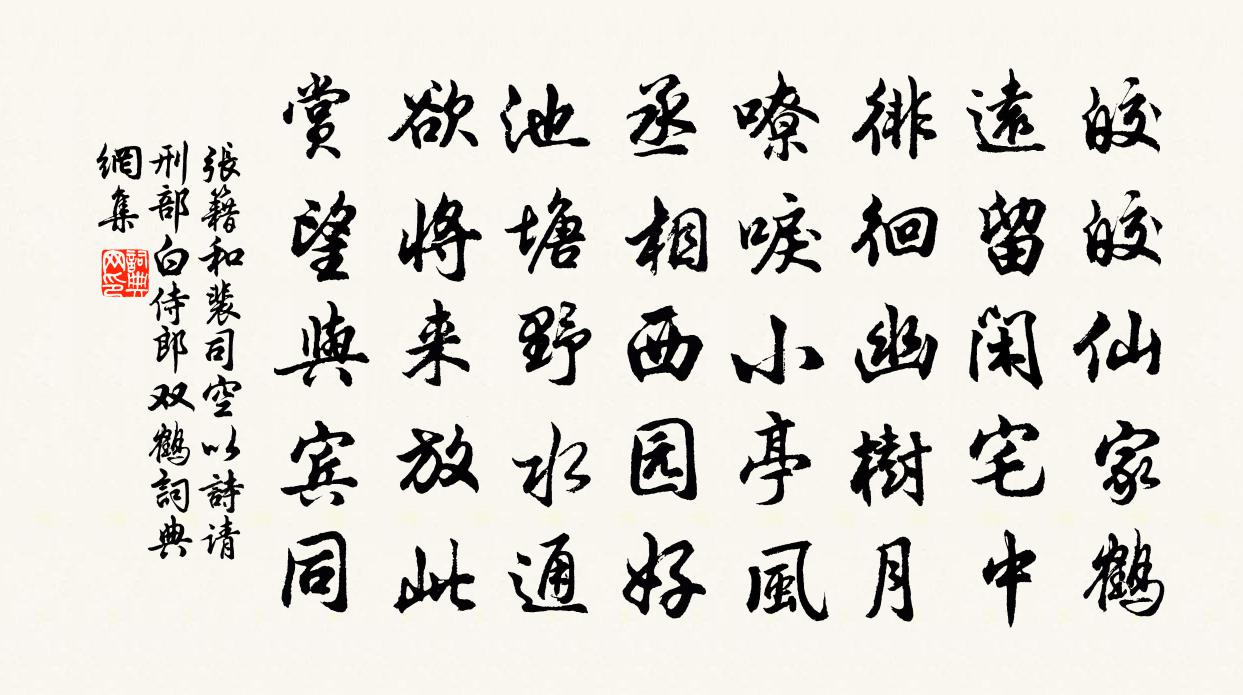 皎皎仙家鹤
遠留閑宅中
徘徊幽樹月
嘹唳小亭風
丞相西园好
池塘野水通
欲将来放此
赏望與宾同
張籍和裴司空以詩请
刑部白侍郎双鶴詞典
網集
詞典网印